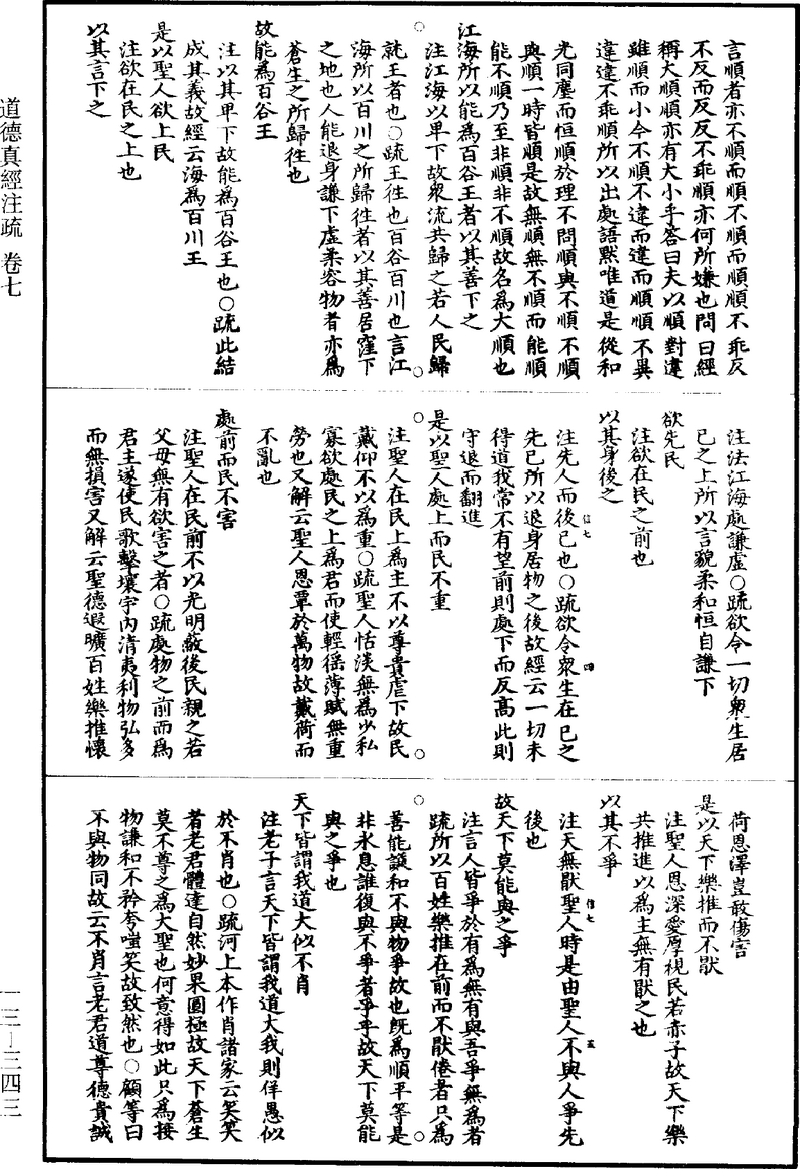 言順者亦不順而順不順而順順不乖反
不反而反反不乖順亦何所嫌也問曰經
稱大順順亦有大小乎答曰夫以順對違
雖順而小今不順不違而違而順順不異
違違不乖順所以出處語默唯道是從和
光同塵而恒順於理不問順與不順不順
與順一時皆順是故無順無不順而能順
能不順乃至非順非不順故名為大順也
江海所以能為百谷王者以其善下之
注江海以卑下故衆流共歸之若人民歸
就王者也○疏王徃也百谷百川也言江
海所以百川之所歸徃者以其善居窪下
之地也人能退身謙下虛柔容物者亦為
蒼生之所歸徃也
故能為百谷王
注以其卑下故能為百谷王也○疏此結
成其義故經云海為百川王
是以聖人欲上民
注欲在民之上也
以其言下之
注法江海處謙虛○疏欲令一切衆生居
已之上所以言貌柔和恒自謙下
欲先民
注欲在民之前也
以其身後之
注先人而後已也○疏欲令衆生在已之
先已所以退身居物之後故經云一切未
得道我常不有望前則處下而反高此則
守退而翻進
是以聖人處上而民不重
注聖人在民上為主不以尊貴虐下故民
戴仰不以為重○疏聖人恬淡無為少私
寡欲處民之上為君而使輕徭薄賦無重
勞也又解云聖人恩覃於萬物故戴荷而
不亂也
處前而民不害
注聖人在民前不以光明蔽後民親之若
父母無有欲害之者○疏處物之前而為
君主遂使民歌擊壤宇內清夷利物弘多
而無損害又解云聖德遐曠百姓樂推懷
荷恩澤豈敢傷害
是以天下樂推而不猒
注聖人恩深愛厚視民若赤子故天下樂
共推進以為主無有猒之也
以其不爭
注天無猒聖人時是由聖人不與人爭先
後也
故天下莫能與之爭
注言人皆爭於有為無有與吾爭無為者
疏所以百姓樂推在前而不猒倦者只為
善能謙和不與物爭故也既為順平等是
非永息誰復與不爭者爭乎故天下莫能
與之爭也
天下皆謂我道大似不肖
注老子言天下皆謂我道大我則佯愚似
於不肖也○疏河上本作肖諸家云笑笑
者老君體達自然妙果圓極故天下蒼生
莫不尊之為大聖也何意得如此只為接
物謙和不矜夸嗤笑故致然也○顧等曰
不與物同故云不肖言老君道尊德貴誠
道德真經注疏 卷七
一三—三四三